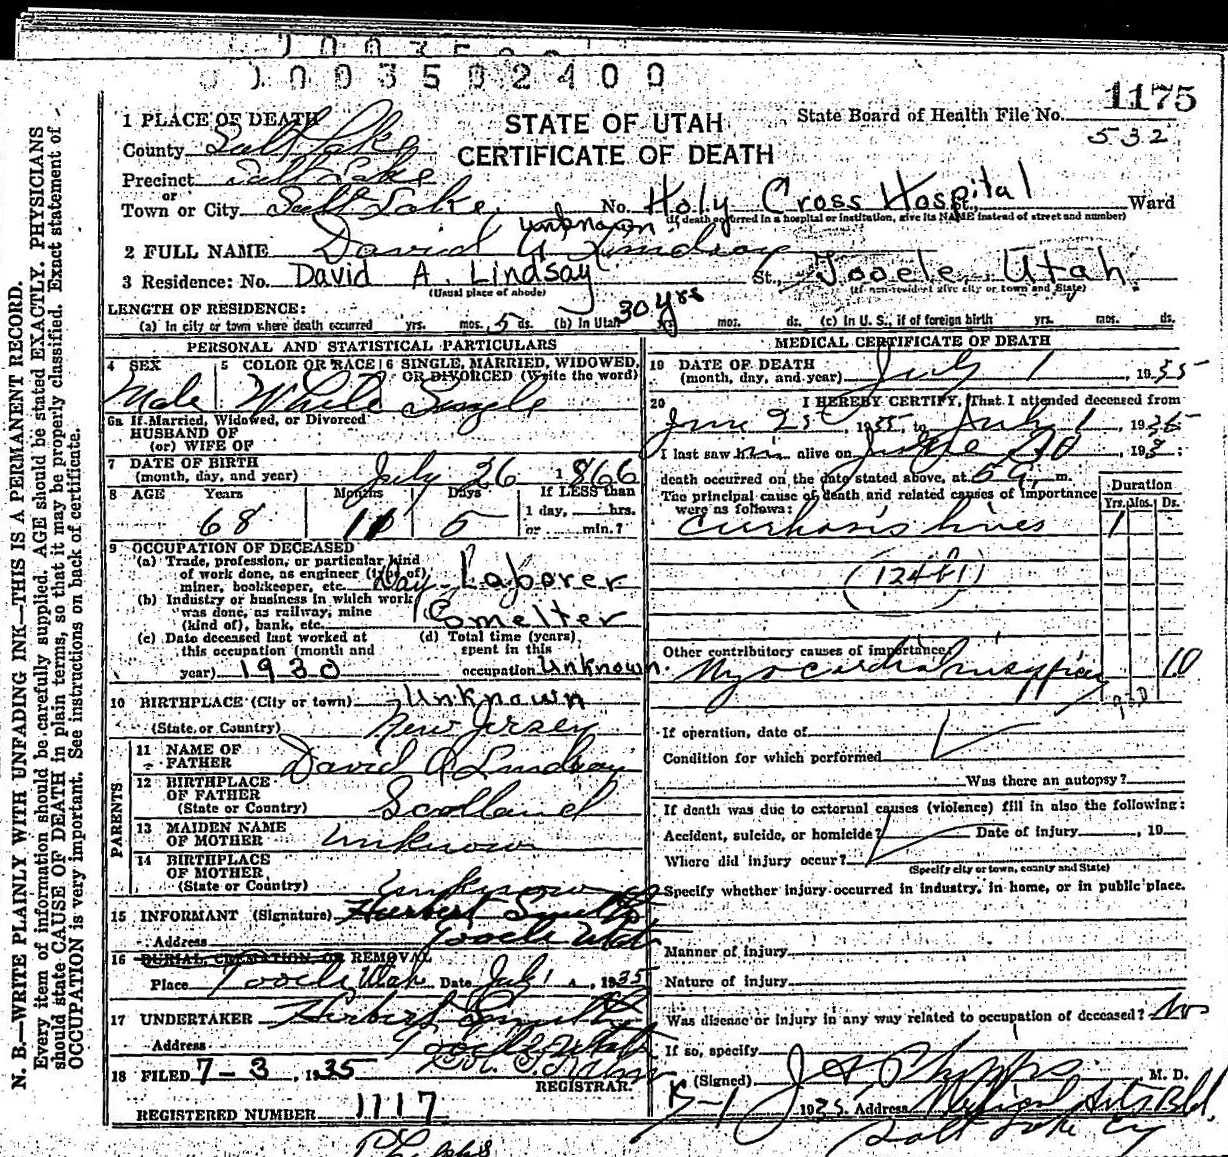 0 0 0 3 5 0 2 4 0 0
1175
State Board of Health File No.
532
STATE OF UTAH
CERTIFICATE OF DEATH
1 PLACE OF DEATH
County Salt Lake
Precinct Salt Lake
or
Town or City Salt Lake No. Holy Cross Hospital St., Ward
(If death occurred in a hospital or institution, give its NAME instead of street and number)
unknown
2 FULL NAME David A Lindsay
3 Residence: No. David A. Lindsay St., Tooele, Utah
(Usual place of abode) (If non-resident give city or town and State)
LENGTH OF RESIDENCE:
(a) In city or town where death occurred yrs. mos. 5 ds. (b) In Utah 30 yrs yrs. mos. ds. (c) In U. S., if of foreign birth yrs. mos. ds.
PERSONAL AND STATISTICAL PARTICULARS
4 SEX 5 COLOR OR RACE 6 SINGLE, MARRIED, WIDOWED,
OR DIVORCED (Write the word)
Male White Single
6a If Married, Widowed, or Divorced
HUSBAND OF
(or) WIFE OF
7 DATE OF BIRTH
(month, day, and year) July 26 1866
8 AGE Years Months Days If LESS than
1 day, hrs.
68 11 5 or min.?
9 OCCUPATION OF DECEASED
(a) Trade, profession, or particular kind
of work done, as engineer (type of)
miner, bookkeeper, etc. Day Laborer
(b) Industry or business in which work
was done, as railway, mine
(kind of), bank, etc. Smelter
(c) Date deceased last worked at (d) Total time (years)
this occupation (month and spent in this
year) 1930 occupation Unknown.
10 BIRTHPLACE (City or town) Unknown
(State or Country) New Jersey
PARENTS
11 NAME OF
FATHER David A Lindsay
12 BIRTHPLACE
OF FATHER
(State or Country) Scotland
13 MAIDEN NAME
OF MOTHER unknown
14 BIRTHPLACE
OF MOTHER
(State or Country) Unknown
15 INFORMANT (Signature) Herbert Smith
Address Tooele Utah
16 BURIAL, CREMATION, OR REMOVAL
Place Tooele Utah Date July 1, 1935
17 UNDERTAKER Herbert Smith
Address Tooele Utah
18 FILED 7-3, 1935
REGISTRAR.
REGISTERED NUMBER 1117
MEDICAL CERTIFICATE OF DEATH
19 DATE OF DEATH
(month, day, and year) July 1 1935
20 I HEREBY CERTIFY, That I attended deceased from
June 25, 1935, to July 1, 1935
I last saw him alive on June 30, 193 ;
death occurred on the date stated above, at 5 a. m.
The principal cause of death and related causes of importance
were as follows:
Duration
Yrs. Mos. Ds.
Cirrhosis liver 1
(124b1)
Other contributory causes of importance:
Myocardial insufficiency 10
930
If operation, date of
Condition for which performed
Was there an autopsy?
If death was due to external causes (violence) fill in also the following:
Accident, suicide, or homicide? Date of injury , 19
Where did injury occur?
(Specify city or town, county and State)
Specify whether injury occurred in industry, in home, or in public place.
Manner of injury
Nature of injury
Was disease or injury in any way related to occupation of deceased? No
If so, specify
(Signed) J A Phipps M. D.
7-1 1935. Address Medical Arts Bld.
Salt Lake Cy
Phipps
N. B.—WRITE PLAINLY WITH UNFADING INK—THIS IS A PERMANENT RECORD.
Every item of information should be carefully supplied. AGE should be stated EXACTLY. PHYSICIANS
should state CAUSE OF DEATH in plain terms, so that it may be properly classified. Exact statement of
OCCUPATION is very important. See instructions on back of certificate.